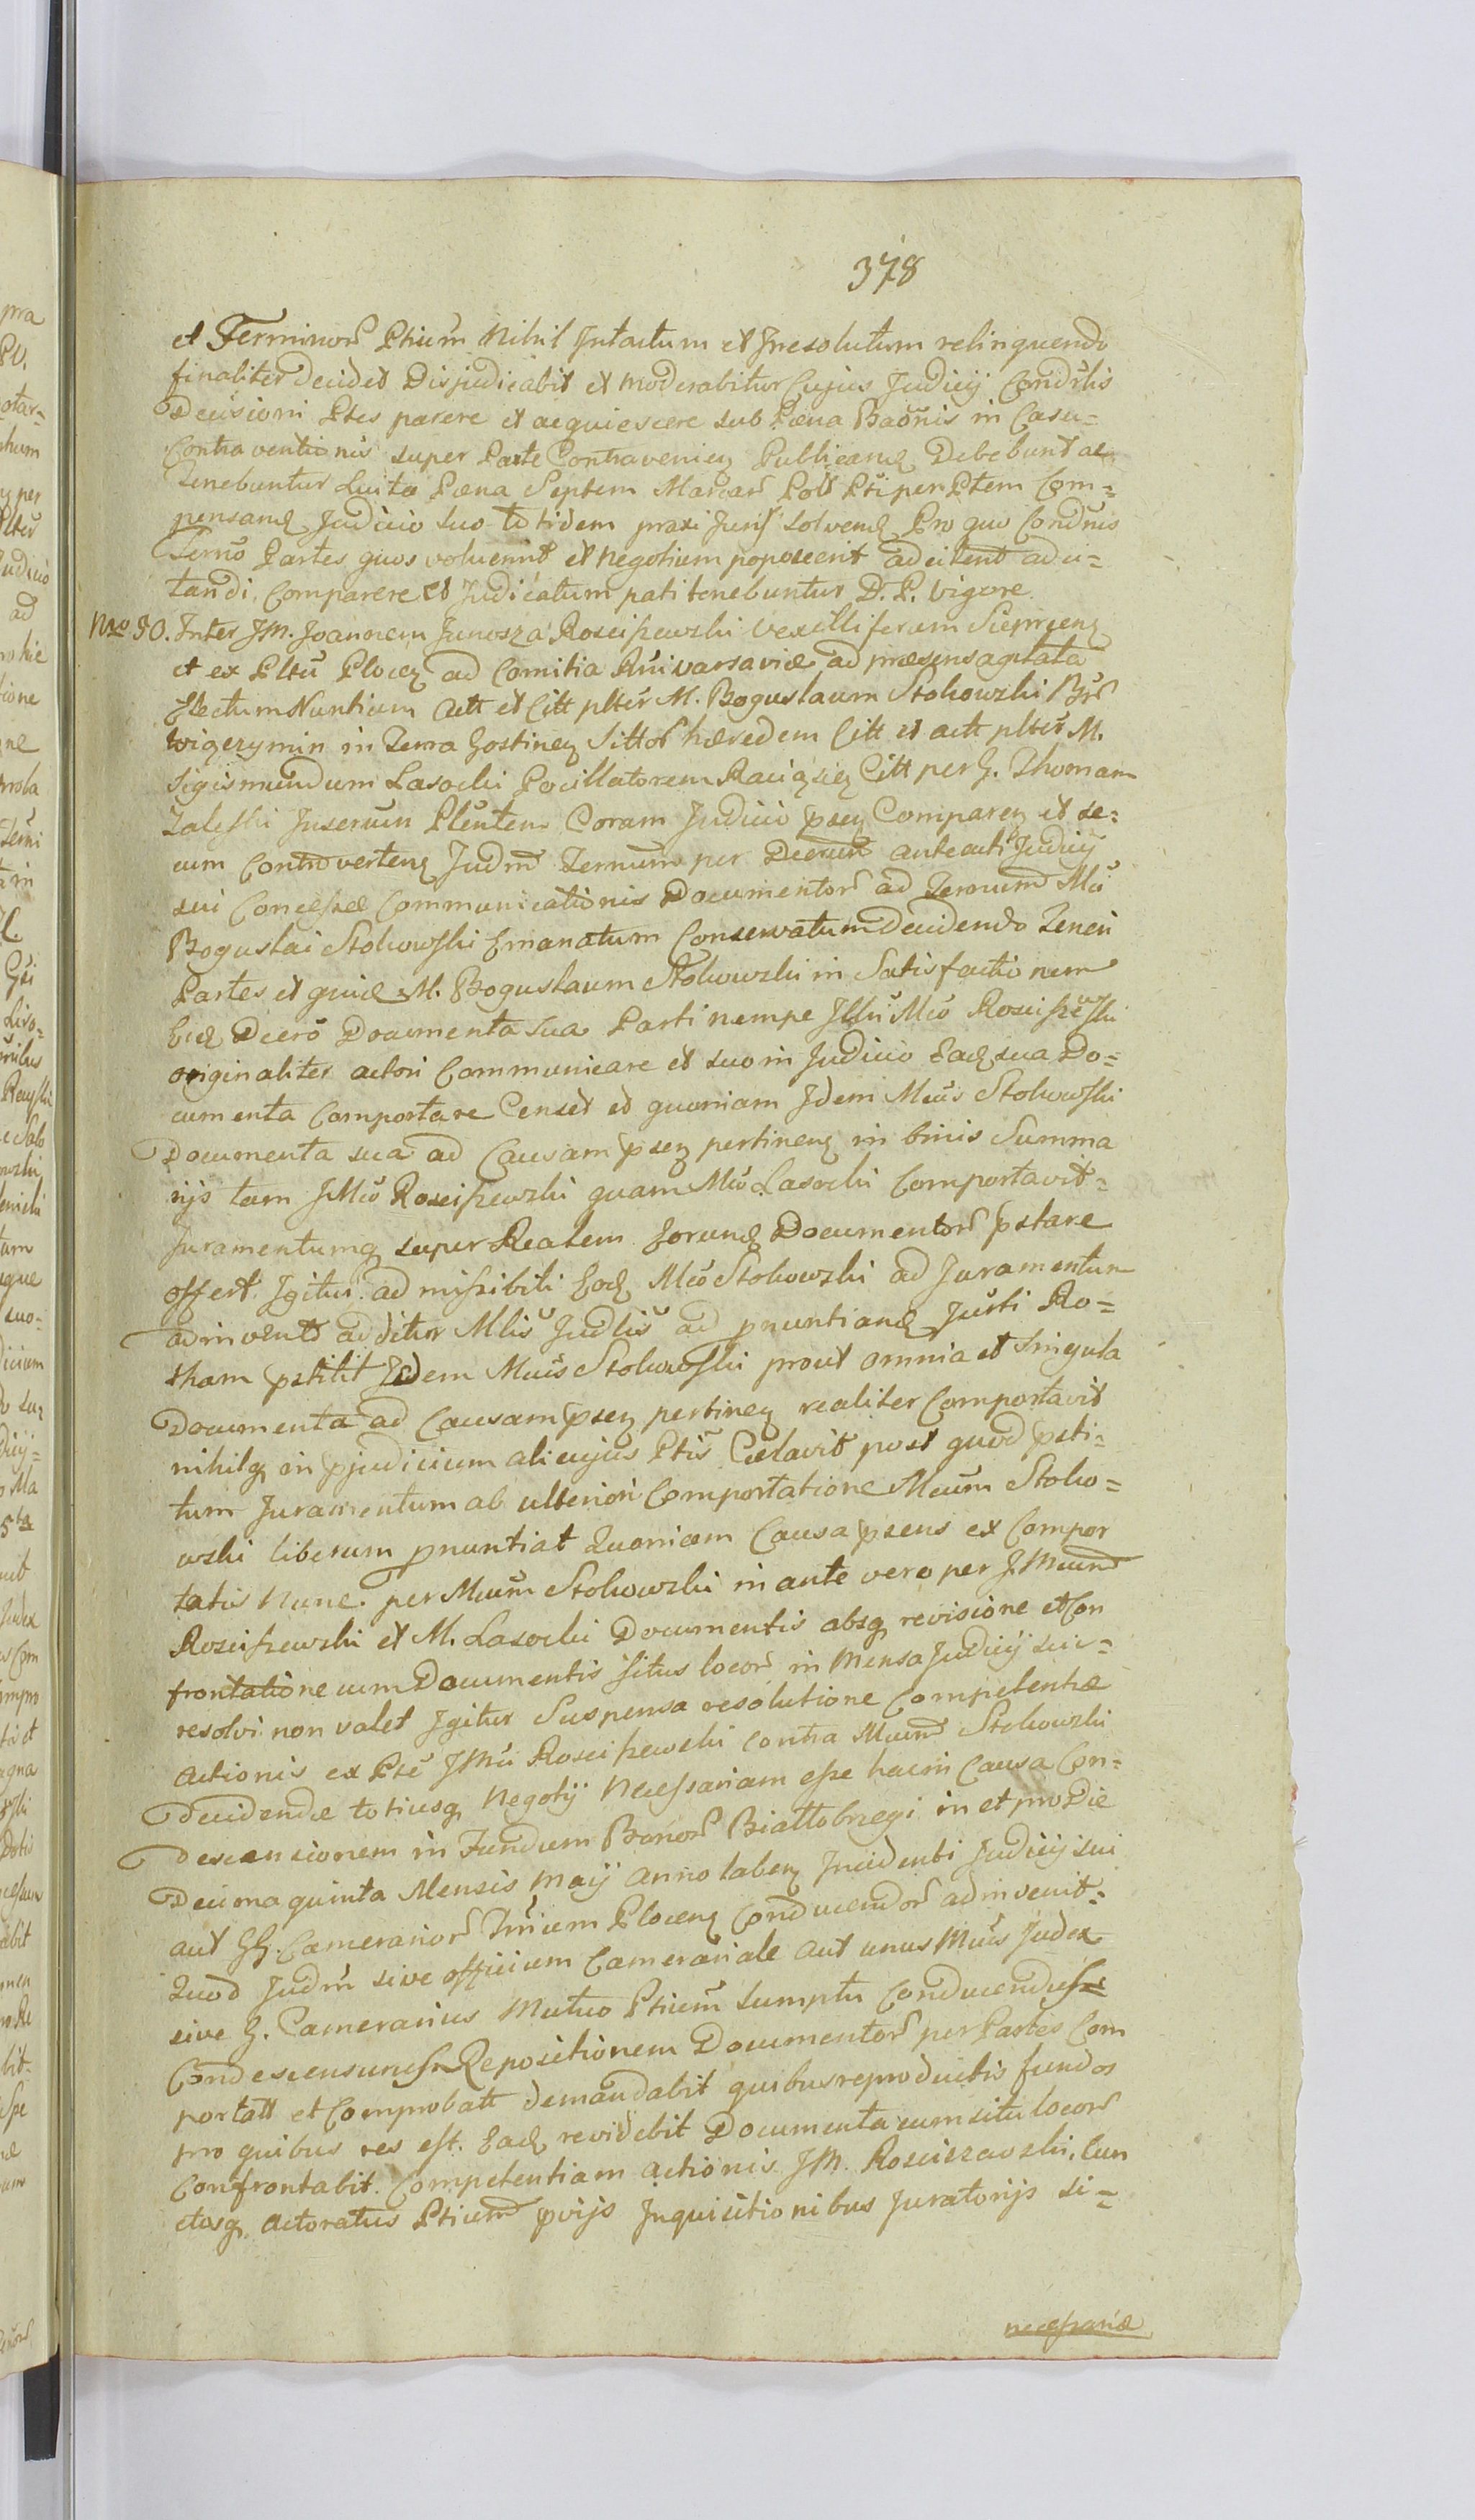 378
et Terminor Ptium Nihil Intactum et Irresolutum relinquendo
finaliter decidet Disjudicabit et moderabitur Cujus Judicij Condtlis
Decisioni Ptes parere et acquiescere sub Pæna Baonis in Casu=
Contraventionis super Parte Contravenien Publicand Debebunt ac
Tenebuntur Luita Pæna Septem Marcar Poll Pti per Ptem Com=
pensand Judicio suo totidem praxi Juris solvend Pro quo Condnis
Termo Partes quos voluerint et Negotium poposcerit adcitent adci=
tandi. Comparere et Judicatum pati tenebuntur D. P. Vigore.
Nro 30. Inter JM. Joannem Junosza Rosciszewski Vexilliferum Sieprcen
et ex Pltu Plocen ad Comitia Rni Varsaviæ ad præsens agitata
Electum Nuntium Actt et Citt plter M. Boguslaum Stokowski Bor
Wiązymin in Terra Gostinen Sittor hæredem Citt et actt plter M.
Sigismundum Lasocki Pocillatorem Raciązien Citt per G. Thomam
Zaleski Juserum Plentem Coram Judicio psen Comparen et se=
cum Controverten Judm Ternum per Decrum anteacti Judicij
sui Concessæ Communicationis Documentor ad Ternum Mci
Boguslai Stokowski Emanatum Conservatum decidendo Teneri
Partes et quid M. Boguslaum Stokowski in Satisfactionem
Eid Decro Documenta sua Parti nempe Jllri Mco Rosciszewski
originaliter actori Communicare et suo in Judicio Ead sua Do=
cumenta Comportare Censet et quoniam Idem Mcus Stokowski
Documenta sua ad Causam psen pertinen in binis Summa
rijs tam JMco Rosciszewski quam Mco Lasocki Comportavit=
Juramentumq super Realem Eorund Documentor pstare
offert. Igitur admissibili Eod Mco Stokowski ad Juramentum
adinvento additur Mlis Judlis ad pnuntiand Justi Ro=
tham pstitit Idem Mcus Stokowski prout omnia et Singula
Documenta ad Causam psen pertinen realiter Comportavit
nihilq in pjudicium alicujus Ptis Celavit post quod psti=
tum Juramentum ab ulteriori Comportatione Mcum Stoko=
wski liberum pnuntiat Quoniam Causa psens ex Compor
tatis Nunc per Mcum Stokowski in ante vero per JMcum
Rosciszewski et M. Lasocki Documentis absq revisione et Con
frontatione cum Documentis situs locor in Mensa Judicij sui=
resolvi non valet Igitur Suspensa resolutione Competentiæ
Actionis ex Pte JMci Rosciszewski contra Mcum Stokowski
decidendæ totiusq Negotij Necessariam esse hacin Causa Con=
descensionem in Fundum Bonor Białłobrzegi in et pro Die
Decima quinta Mensis Maij Anno laben Incidenti Judicij sui
aut GG. Camerarior Trium Plocen Conducendor adinvenit=
Quod Judm sive officium Camerariale aut unus Mcus Judex
sive G. Camerarius Mutuo Ptium sumptu Conducendus
Condescensurus Repositionem Documentor per Partes Com
portatt et Comprobatt demandabit quibus reproductis fundos
pro quibus res est. Ead revidebit Documenta cum situ locor
Confrontabit. Competentiam Actionis JM. Rosciszewski, Cun
ctosq Actoratus Ptium pvijs Inquisitionibus Juratorijs si=
necessariæ